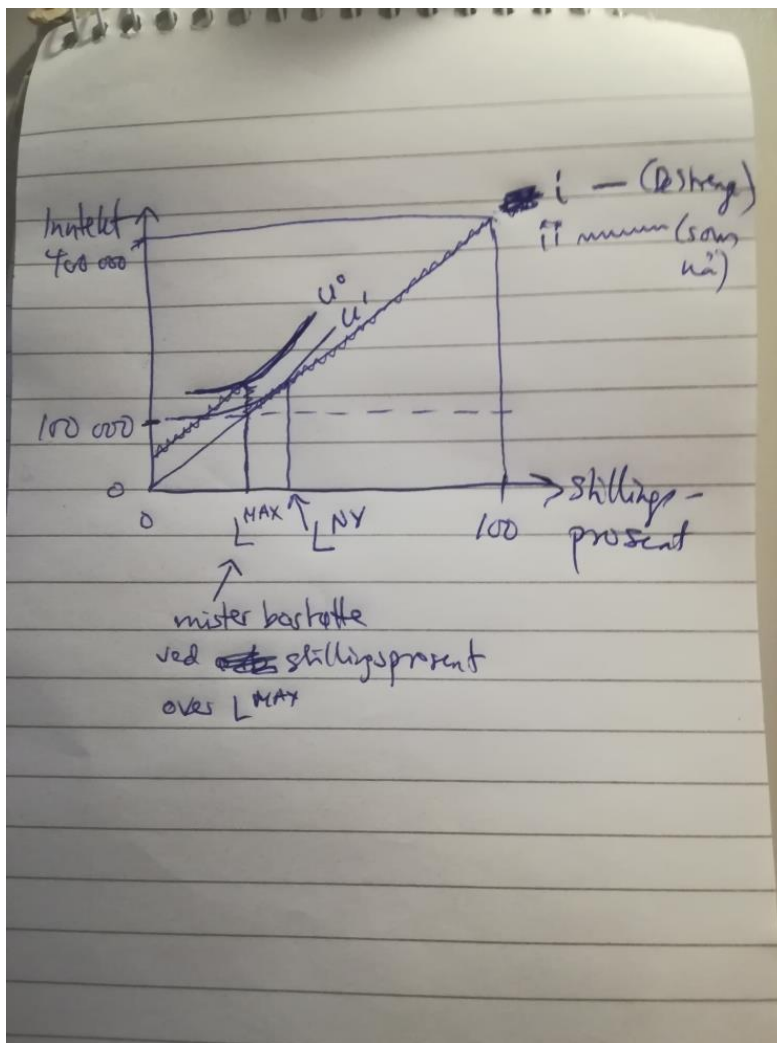 Inntekt
400 000
i — (De strenge)
ii ~~~~ (som
nå)
U⁰
U¹
100 000
0
0
L^MAX
L^NY
100
stillings-
prosent
mister bostøtte
ved stillingsprosent
over L^MAX